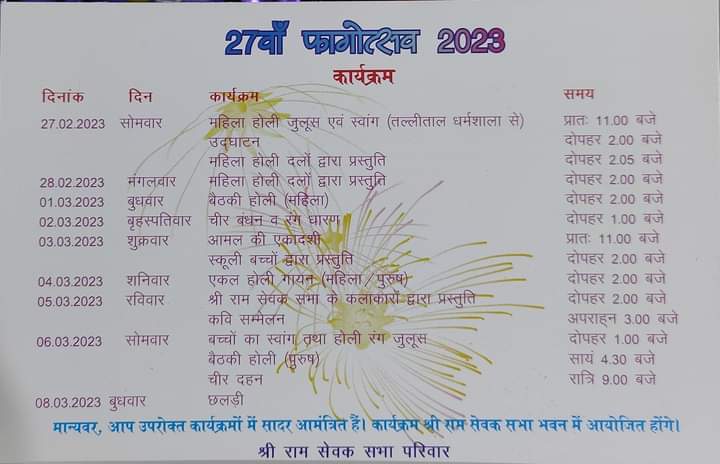 27वाँ फागोत्सव 2023
कार्यक्रम
दिनांक दिन कार्यक्रम समय
27.02.2023 सोमवार महिला होली जुलूस एवं स्वांग (तल्लीताल धर्मशाला से) प्रातः 11.00 बजे
उद्घाटन दोपहर 2.00 बजे
महिला होली दलों द्वारा प्रस्तुति दोपहर 2.05 बजे
28.02.2023 मंगलवार महिला होली दलों द्वारा प्रस्तुति दोपहर 2.00 बजे
01.03.2023 बुधवार बैठकी होली (महिला) दोपहर 2.00 बजे
02.03.2023 बृहस्पतिवार चीर बंधन व रंग धारण दोपहर 1.00 बजे
03.03.2023 शुक्रवार आमल की एकादशी प्रातः 11.00 बजे
स्कूली बच्चों द्वारा प्रस्तुति दोपहर 2.00 बजे
04.03.2023 शनिवार एकल होली गायन (महिला / पुरुष) दोपहर 2.00 बजे
05.03.2023 रविवार श्री राम सेवक सभा के कलाकारों द्वारा प्रस्तुति दोपहर 2.00 बजे
कवि सम्मेलन अपराह्न 3.00 बजे
06.03.2023 सोमवार बच्चों का स्वांग तथा होली रंग जुलूस दोपहर 1.00 बजे
बैठकी होली (पुरुष) सायं 4.30 बजे
चीर दहन रात्रि 9.00 बजे
08.03.2023 बुधवार छलड़ी
मान्यवर, आप उपरोक्त कार्यक्रमों में सादर आमंत्रित हैं। कार्यक्रम श्री राम सेवक सभा भवन में आयोजित होंगे।
श्री राम सेवक सभा परिवार